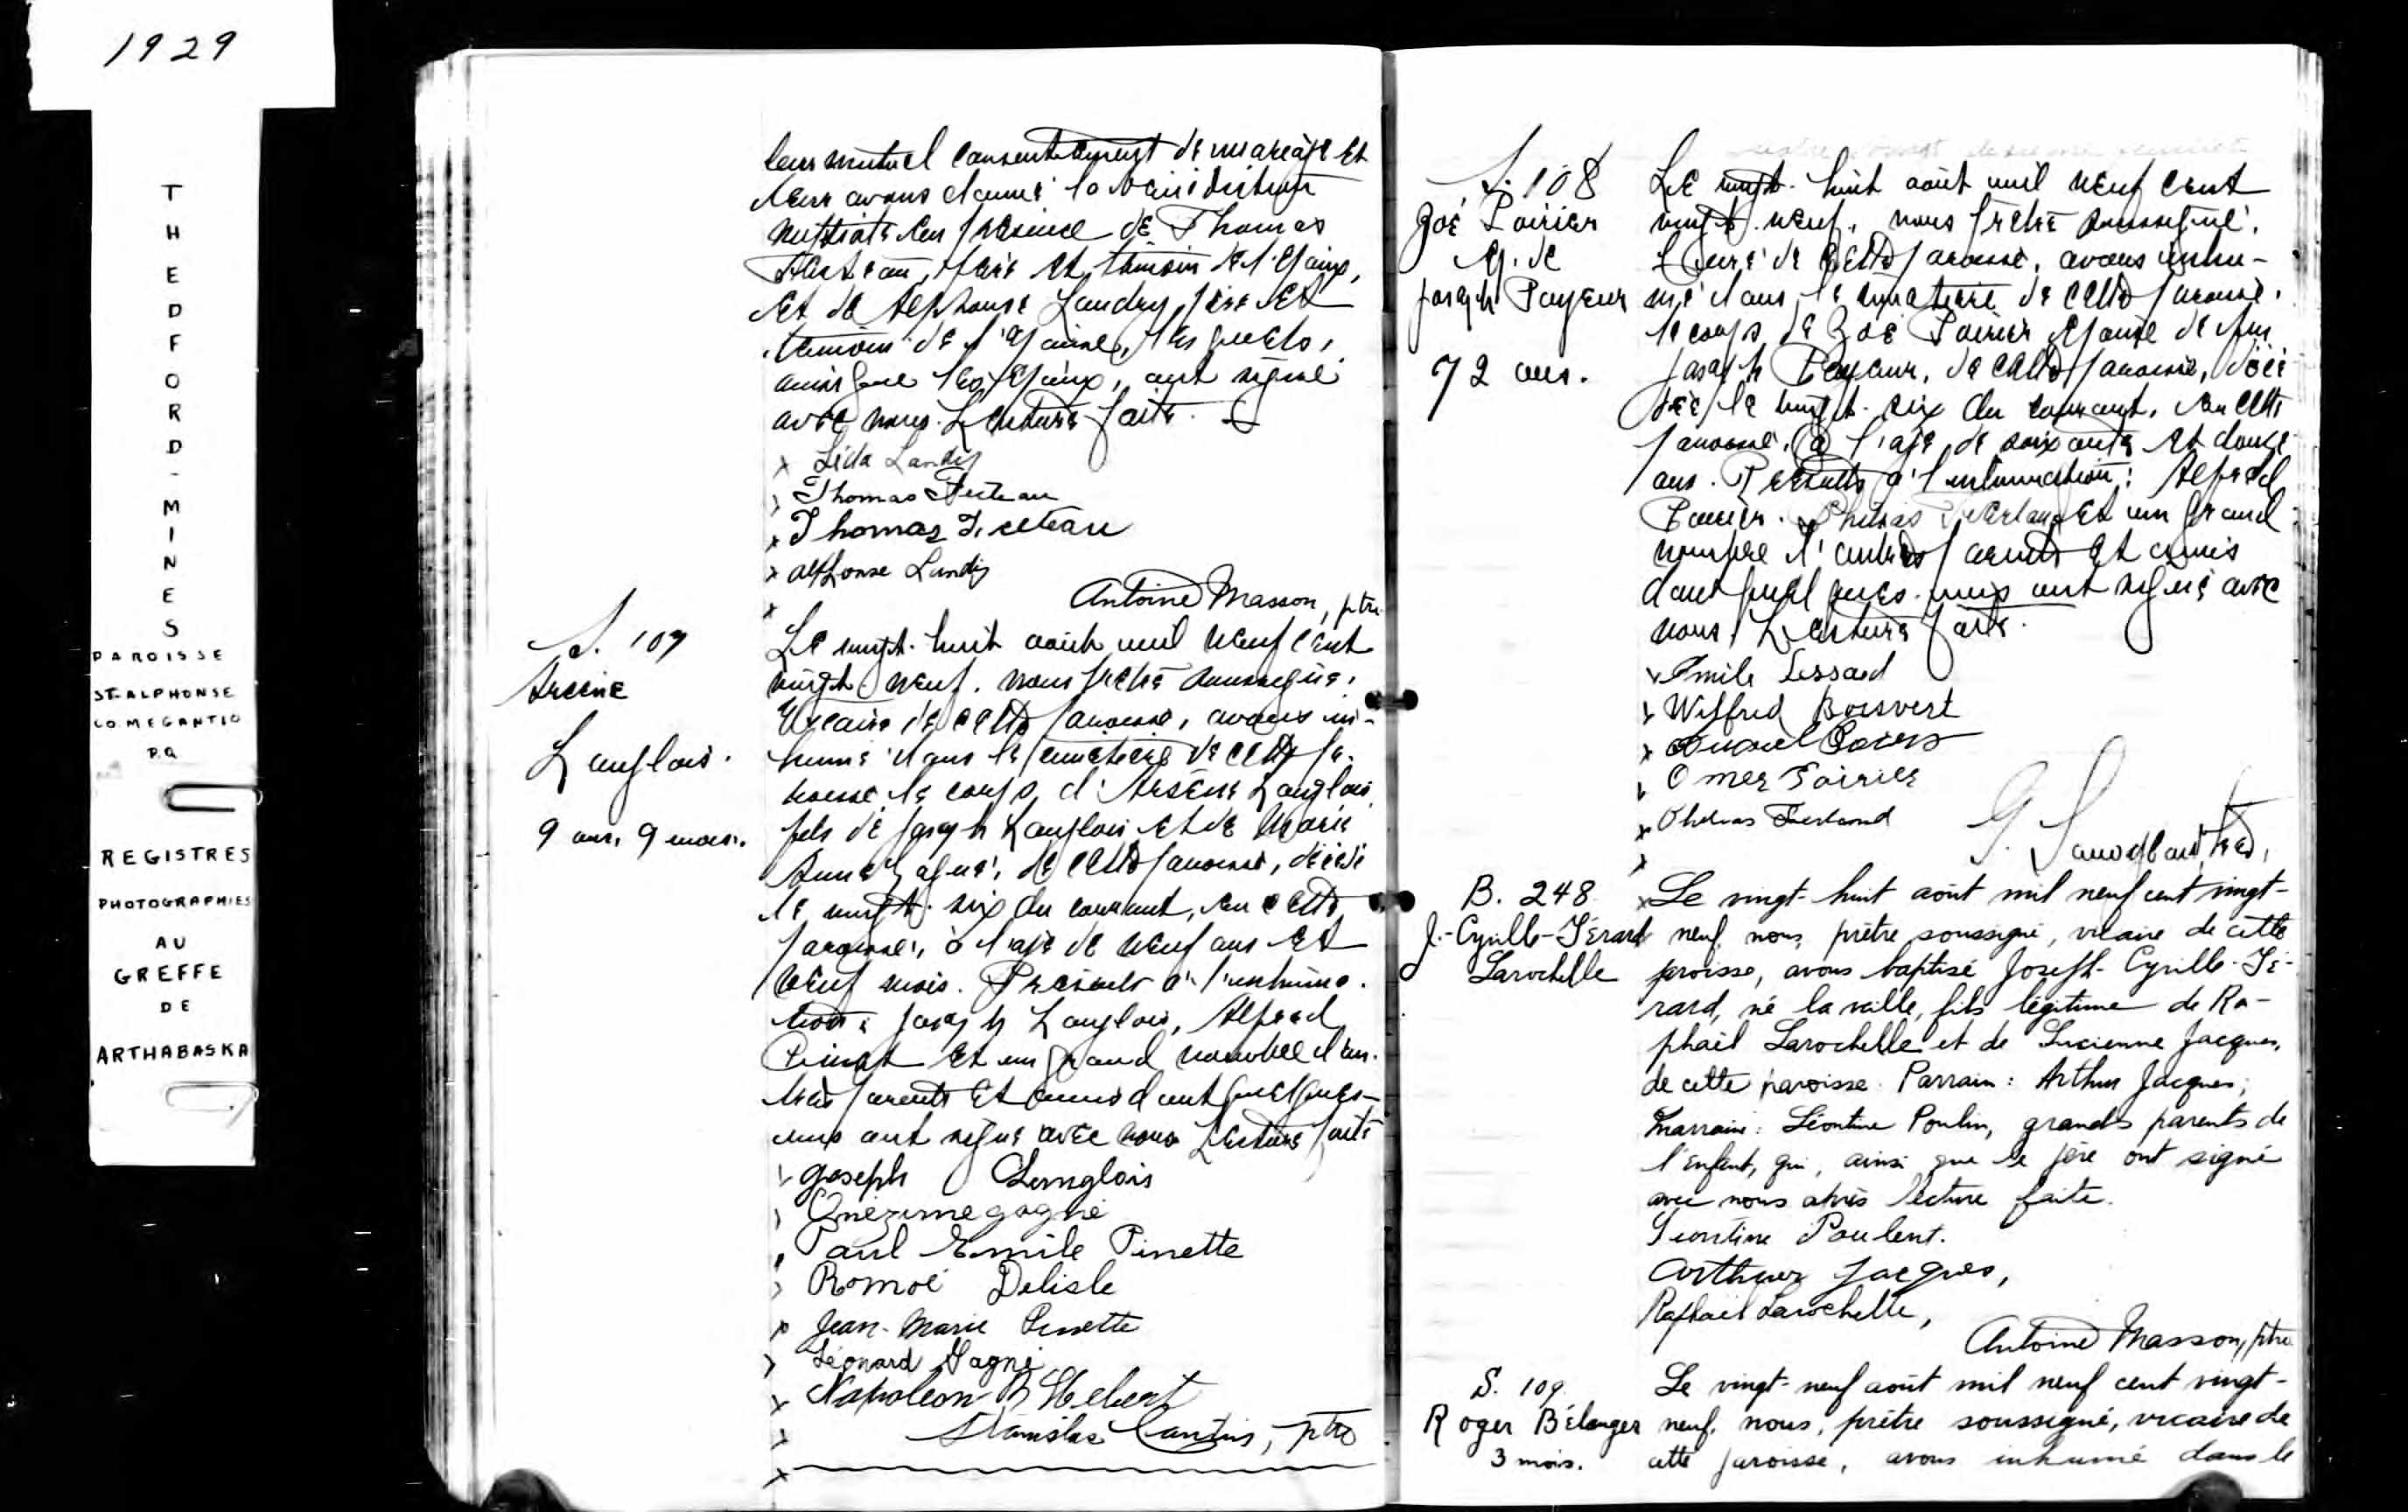 1929
THEDFORD-MINES
PAROISSE
ST-ALPHONSE
CO. MEGANTIC
P.Q.
REGISTRES
PHOTOGRAPHIES
AU
GREFFE
DE
ARTHABASKA
leur mutuel consentement de mariage et
leur avons donné la bénédiction
nuptiale en présence de Thomas
père et témoin de l'époux,
et de Alphonse Landry, père et
témoin de l'épouse, lesquels,
ainsi que les époux, ont signé
avec nous. Lecture faite.
Lida Landry
Thomas Fecteau
Thomas Fecteau
Alphonse Landry
Antoine Masson, ptre
S. 107
Arsène
Langlois.
9 ans, 9 mois.
Le vingt-huit août mil neuf cent
vingt-neuf, nous prêtre soussigné,
vicaire de cette paroisse, avons in-
humé dans le cimetière de cette pa-
roisse, le corps d'Arsène Langlois,
fils de Joseph Langlois et de Marie
Anne Gagné, de cette paroisse, décédé
le vingt-six du courant, en cette
paroisse, à l'age de neuf ans et
neuf mois. Présents à l'inhuma-
tion: Joseph Langlois, Alfred
et un grand nombre d'au-
tres parents et amis dont quelques-
uns ont signé avec nous Lecture faite
Joseph Langlois
Onézime gagné
Paul Emile Pinette
Roméo Delisle
Jean-Marie Pinette
Léonard Gagné
Napoléon B Hebert
Stanislas Cantin, ptre
S. 108
Zoé Poirier
ep. de
Joseph Payeur
72 ans.
Le vingt-huit août mil neuf cent
vingt-neuf, nous prêtre soussigné,
curé de cette paroisse, avons inhu-
mé dans le cimetière de cette paroisse,
le corps de Zoé Poirier épouse de feu
Joseph Payeur, de cette paroisse, décé-
dée le vingt-six du courant, en cette
paroisse, à l'age de soixante et douze
ans. Présents à l'inhumation: Alfred
Poirier, et un grand
nombre d'autres parents et amis
dont quelques-uns ont signé avec
nous. Lecture faite.
Emile Lessard
Wilfrid Boisvert
Omer Poirier
B. 248
J.-Cyrille-Gérard
Larochelle
Le vingt-huit août mil neuf cent vingt-
neuf, nous, prêtre soussigné, vicaire de cette
paroisse, avons baptisé Joseph-Cyrille-Gé-
rard, né la veille, fils légitime de Ra-
phaël Larochelle et de Lucienne Jacques,
de cette paroisse. Parrain: Arthur Jacques;
Marraine: Léontine Poulin, grands parents de
l'enfant, qui, ainsi que le père ont signé
avec nous après lecture faite.
Leontine Poulent.
Arthur Jacques,
Raphaël Larochelle,
Antoine Masson, ptre
S. 109.
Roger Bélanger
3 mois.
Le vingt-neuf août mil neuf cent vingt-
neuf, nous, prêtre soussigné, vicaire de
cette paroisse, avons inhumé dans le